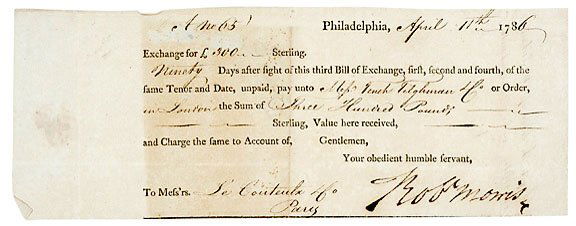 A no 65 Philadelphia, April 11th 1786
Exchange for £ 300 Sterling.
Ninety Days after ſight of this third Bill of Exchange, firſt, second and fourth, of the
ſame Tenor and Date, unpaid, pay unto Meſs Tench Tilghman & Co or Order,
in London the Sum of Three Hundred Pounds
Sterling, Value here received,
and Charge the ſame to Account of, Gentlemen,
Your obedient humble ſervant,
To Meſs'rs. Le Couteulx & Co Robt Morris
Paris